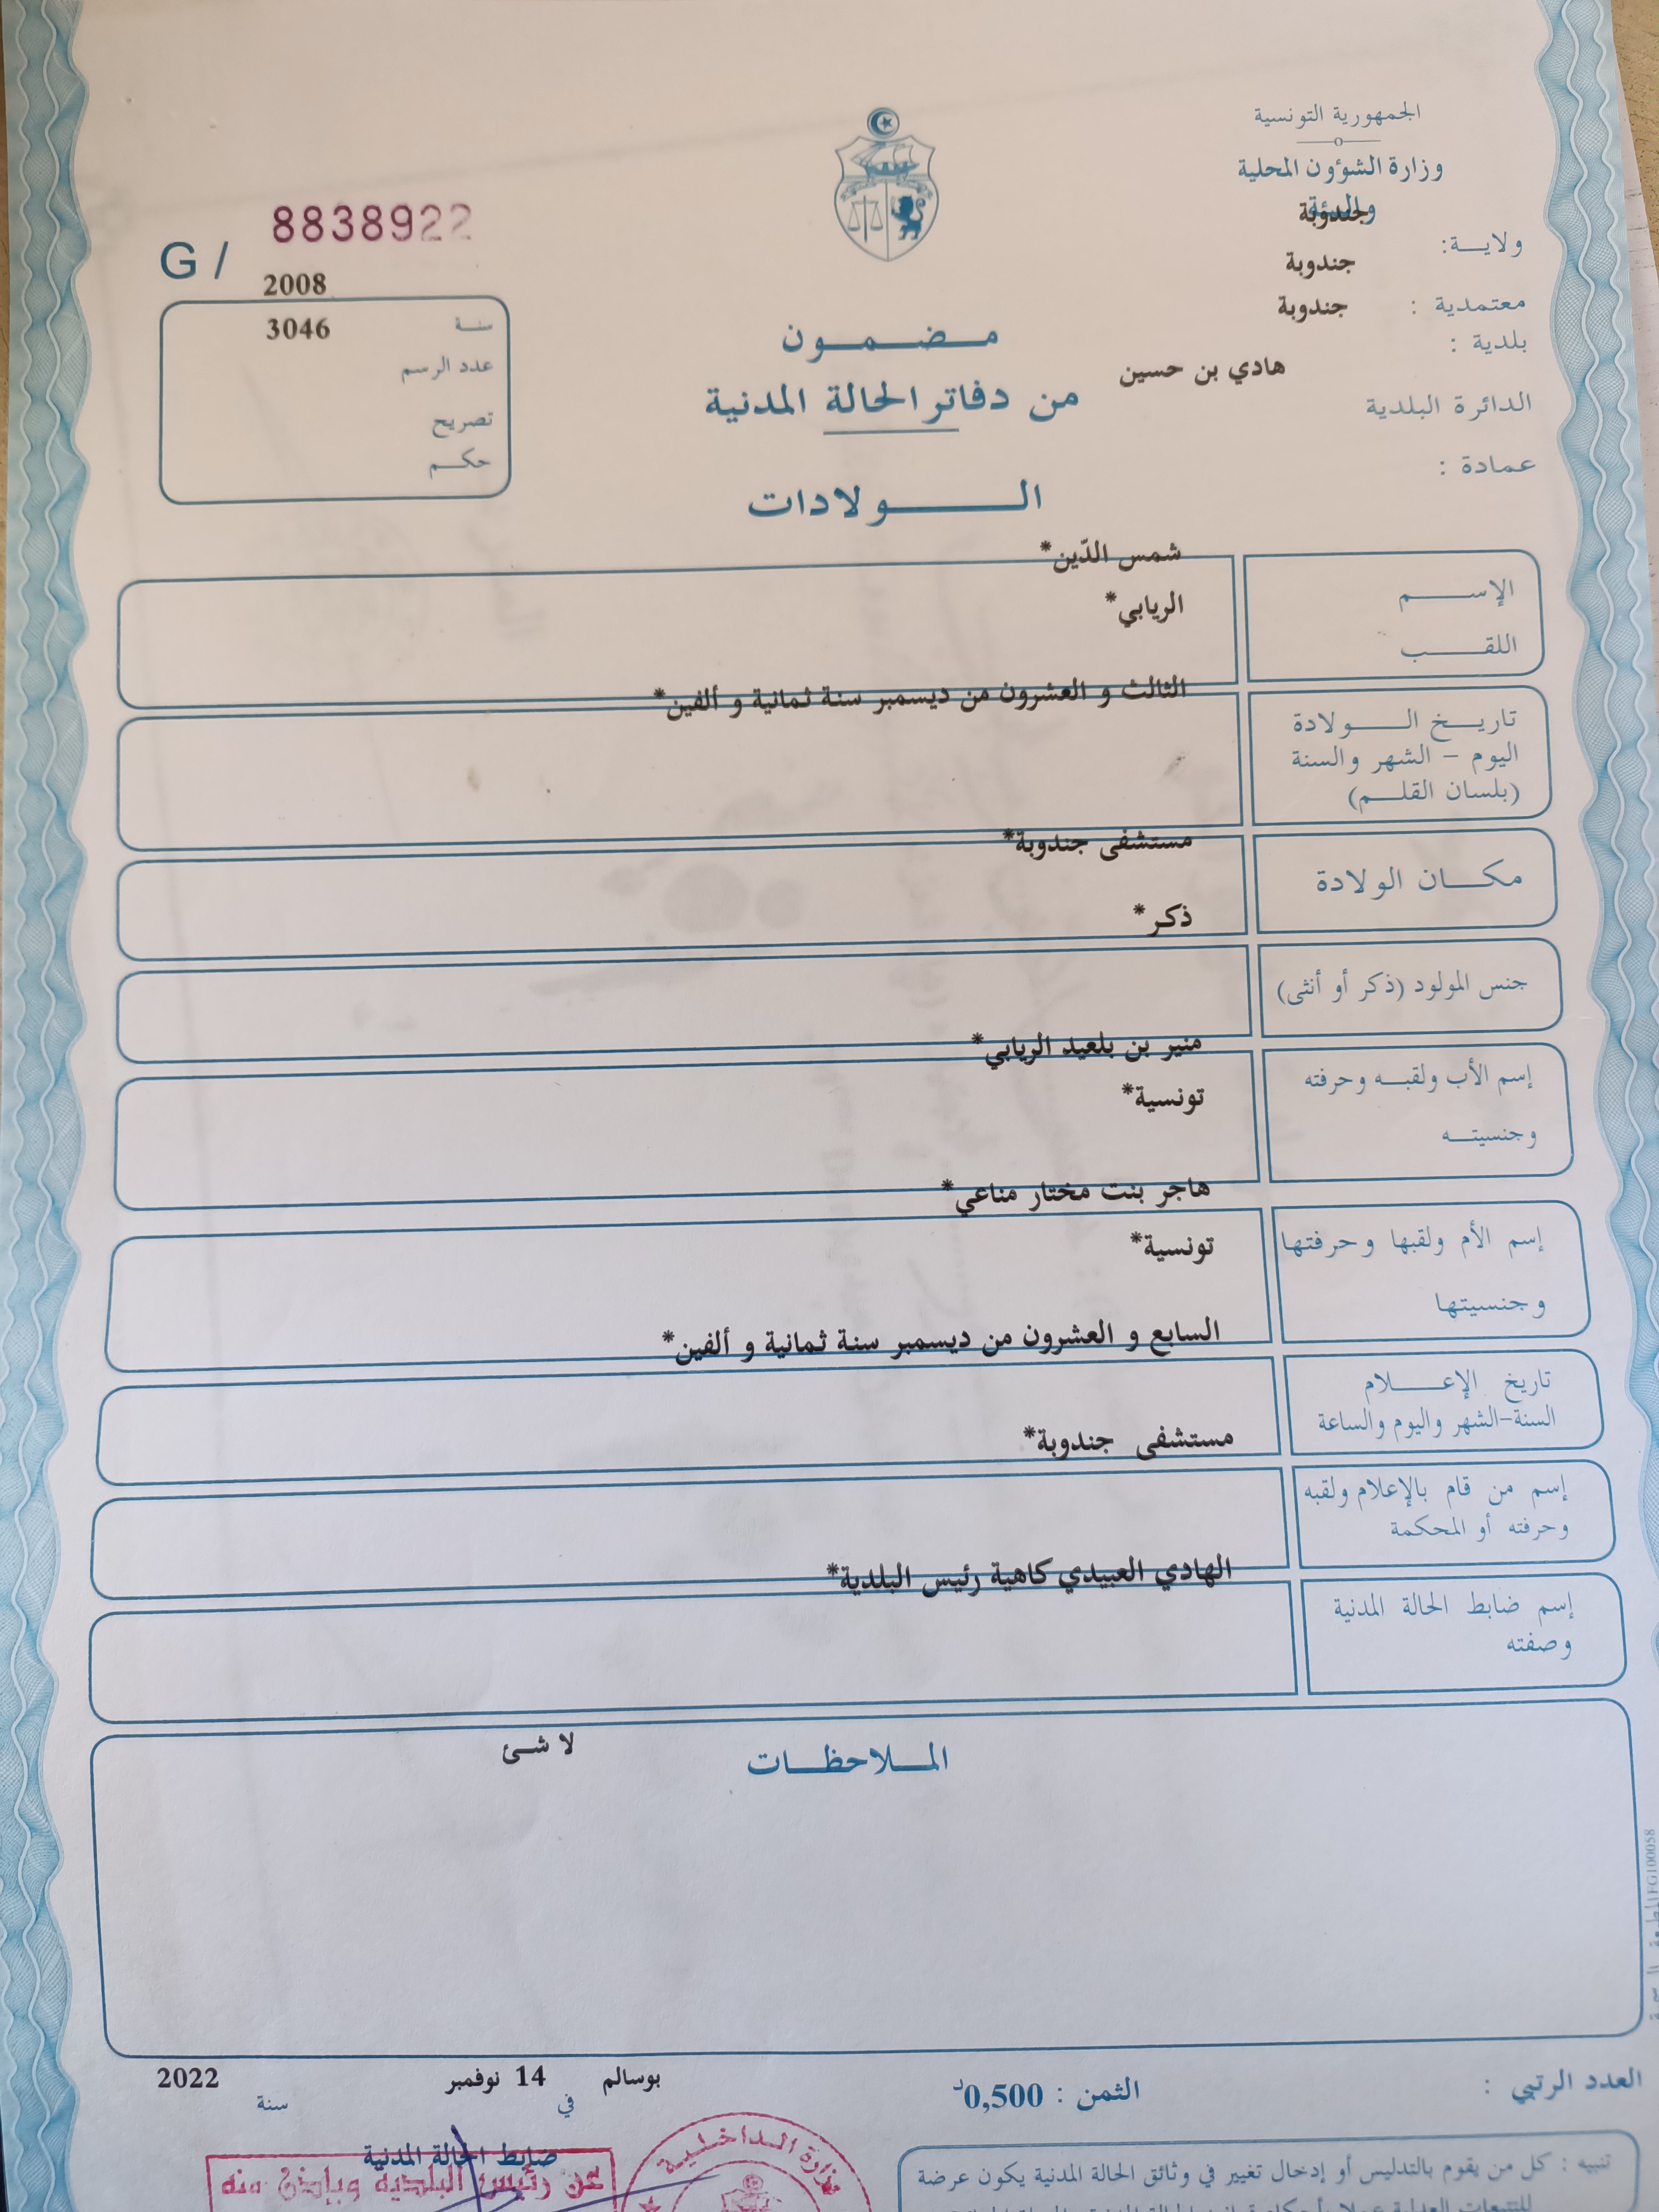 الجمهورية التونسية
وزارة الشؤون المحلية
والبيئة
جندوبة
ولايـة:
جندوبة
معتمدية :
جندوبة
بلدية :
هادي بن حسين
الدائرة البلدية
عمادة :
G / 8838922
2008
سنـة
3046
عدد الرسم
تصريح
حكـم
مـضـمـون
من دفاتر الحالة المدنية
الـولادات
شمس الدّين*
الإسـم
الريابي*
اللقـب
الثالث و العشرون من ديسمبر سنة ثمانية و ألفين*
تاريـخ الـولادة
اليوم - الشهر والسنة
(بلسان القلـم)
مستشفى جندوبة*
مكـان الولادة
ذكر*
جنس المولود (ذكر أو أنثى)
منير بن بلعيد الريابي*
إسم الأب ولقبـه وحرفته
تونسية*
وجنسيتـه
هاجر بنت مختار مناعي*
إسم الأم ولقبها وحرفتها
تونسية*
وجنسيتها
السابع و العشرون من ديسمبر سنة ثمانية و ألفين*
تاريخ الإعـلام
السنة-الشهر واليوم والساعة
مستشفى جندوبة*
إسم من قام بالإعلام ولقبه
وحرفته أو المحكمة
الهادي العبيدي كاهية رئيس البلدية*
إسم ضابط الحالة المدنية
وصفته
الملاحظـات
لا شئ
العدد الرتبي :
الثمن : 0,500د
بوسالم في 14 نوفمبر سنة 2022
ضابط الحالة المدنية
عن رئيس البلدية وبإذن منه
وزارة الداخلية
تنبيه : كل من يقوم بالتدليس أو إدخال تغيير في وثائق الحالة المدنية يكون عرضة